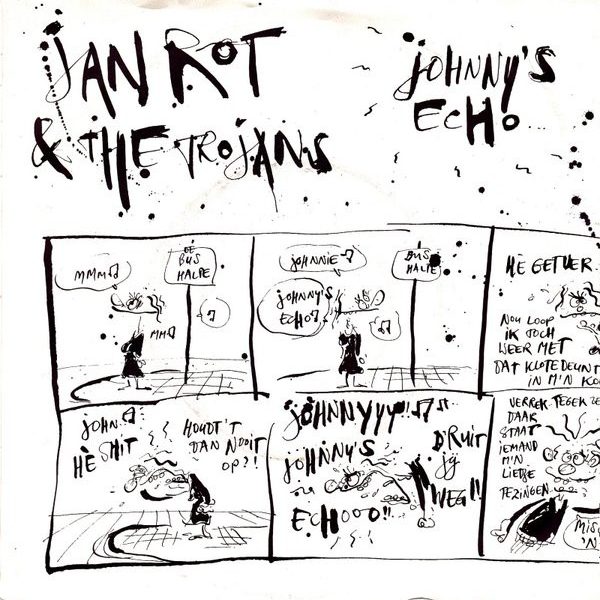 JAN ROT
JOHNNY'S
& THE TROJANS
ECHO
MMM
DE
BUS
HALTE
MM
JOHNNIE
BUS
HALTE
JOHNNY'S
ECHO
HÈ GETVER
NOU LOOP
IK TOCH
WEER MET
DAT KLOTEDEUNT
IN M'N KO
JOHN
HÈ SHIT
HOUDT'T
DAN NOOIT
OP?!
JOHNNYYY!
JOHNNY'S
ECHOOO!!
D'RUIT
JÝ
WEG!!
VERREK TEGEK ZE
DAAR
STAAT
IEMAND
M'N
LIEDJE
TE ZINGEN
MISS
'N